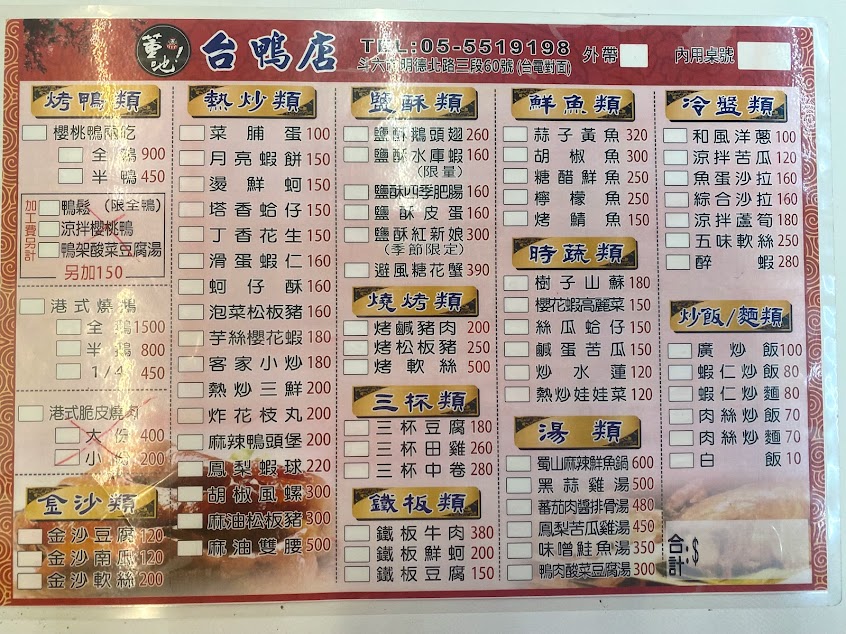 董ㄟ!
台鴨店
TEL:05-5519198
斗六市明德北路三段60號(台電對面)
外帶
內用桌號
烤鴨類
櫻桃鴨兩吃
全鴨 900
半鴨 450
加工費另計
鴨鬆 (限全鴨)
涼拌櫻桃鴨
鴨架酸菜豆腐湯
另加150
港式燒鵝
全鵝 1500
半鵝 800
1/4 450
港式脆皮燒肉
大份 400
小份 200
金沙類
金沙豆腐 120
金沙南瓜 120
金沙軟絲 200
熱炒類
菜脯蛋 100
月亮蝦餅 150
燙鮮蚵 150
塔香蛤仔 150
丁香花生 150
滑蛋蝦仁 160
蚵仔酥 160
泡菜松板豬 160
芋絲櫻花蝦 180
客家小炒 180
熱炒三鮮 200
炸花枝丸 200
麻辣鴨頭堡 200
鳳梨蝦球 220
胡椒風螺 300
麻油松板豬 300
麻油雙腰 500
鹽酥類
鹽酥鵝頭翅 260
鹽酥水庫蝦 160
(限量)
鹽酥四季肥腸 160
鹽酥皮蛋 160
鹽酥紅新娘 300
(季節限定)
避風糖花蟹 390
燒烤類
烤鹹豬肉 200
烤松板豬 250
烤軟絲 500
三杯類
三杯豆腐 180
三杯田雞 260
三杯中卷 280
鐵板類
鐵板牛肉 380
鐵板鮮蚵 200
鐵板豆腐 150
鮮魚類
蒜子黃魚 320
胡椒魚 300
糖醋鮮魚 250
檸檬魚 250
烤鯖魚 150
時蔬類
樹子山蘇 180
櫻花蝦高麗菜 150
絲瓜蛤仔 150
鹹蛋苦瓜 150
炒水蓮 120
熱炒娃娃菜 120
湯類
蜀山麻辣鮮魚鍋 600
黑蒜雞湯 500
蕃茄肉醬排骨湯 480
鳳梨苦瓜雞湯 450
味噌鮭魚湯 350
鴨肉酸菜豆腐湯 300
冷盤類
和風洋蔥 100
涼拌苦瓜 120
魚蛋沙拉 160
綜合沙拉 160
涼拌蘆筍 180
五味軟絲 250
醉蝦 280
炒飯/麵類
廣炒飯 100
蝦仁炒飯 80
蝦仁炒麵 80
肉絲炒飯 70
肉絲炒麵 70
白飯 10
合計:$